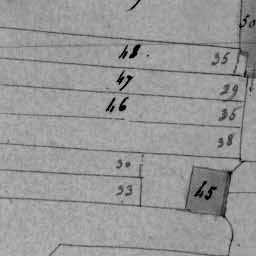 50
48. 35
47 29
46 35
38
30
33 45